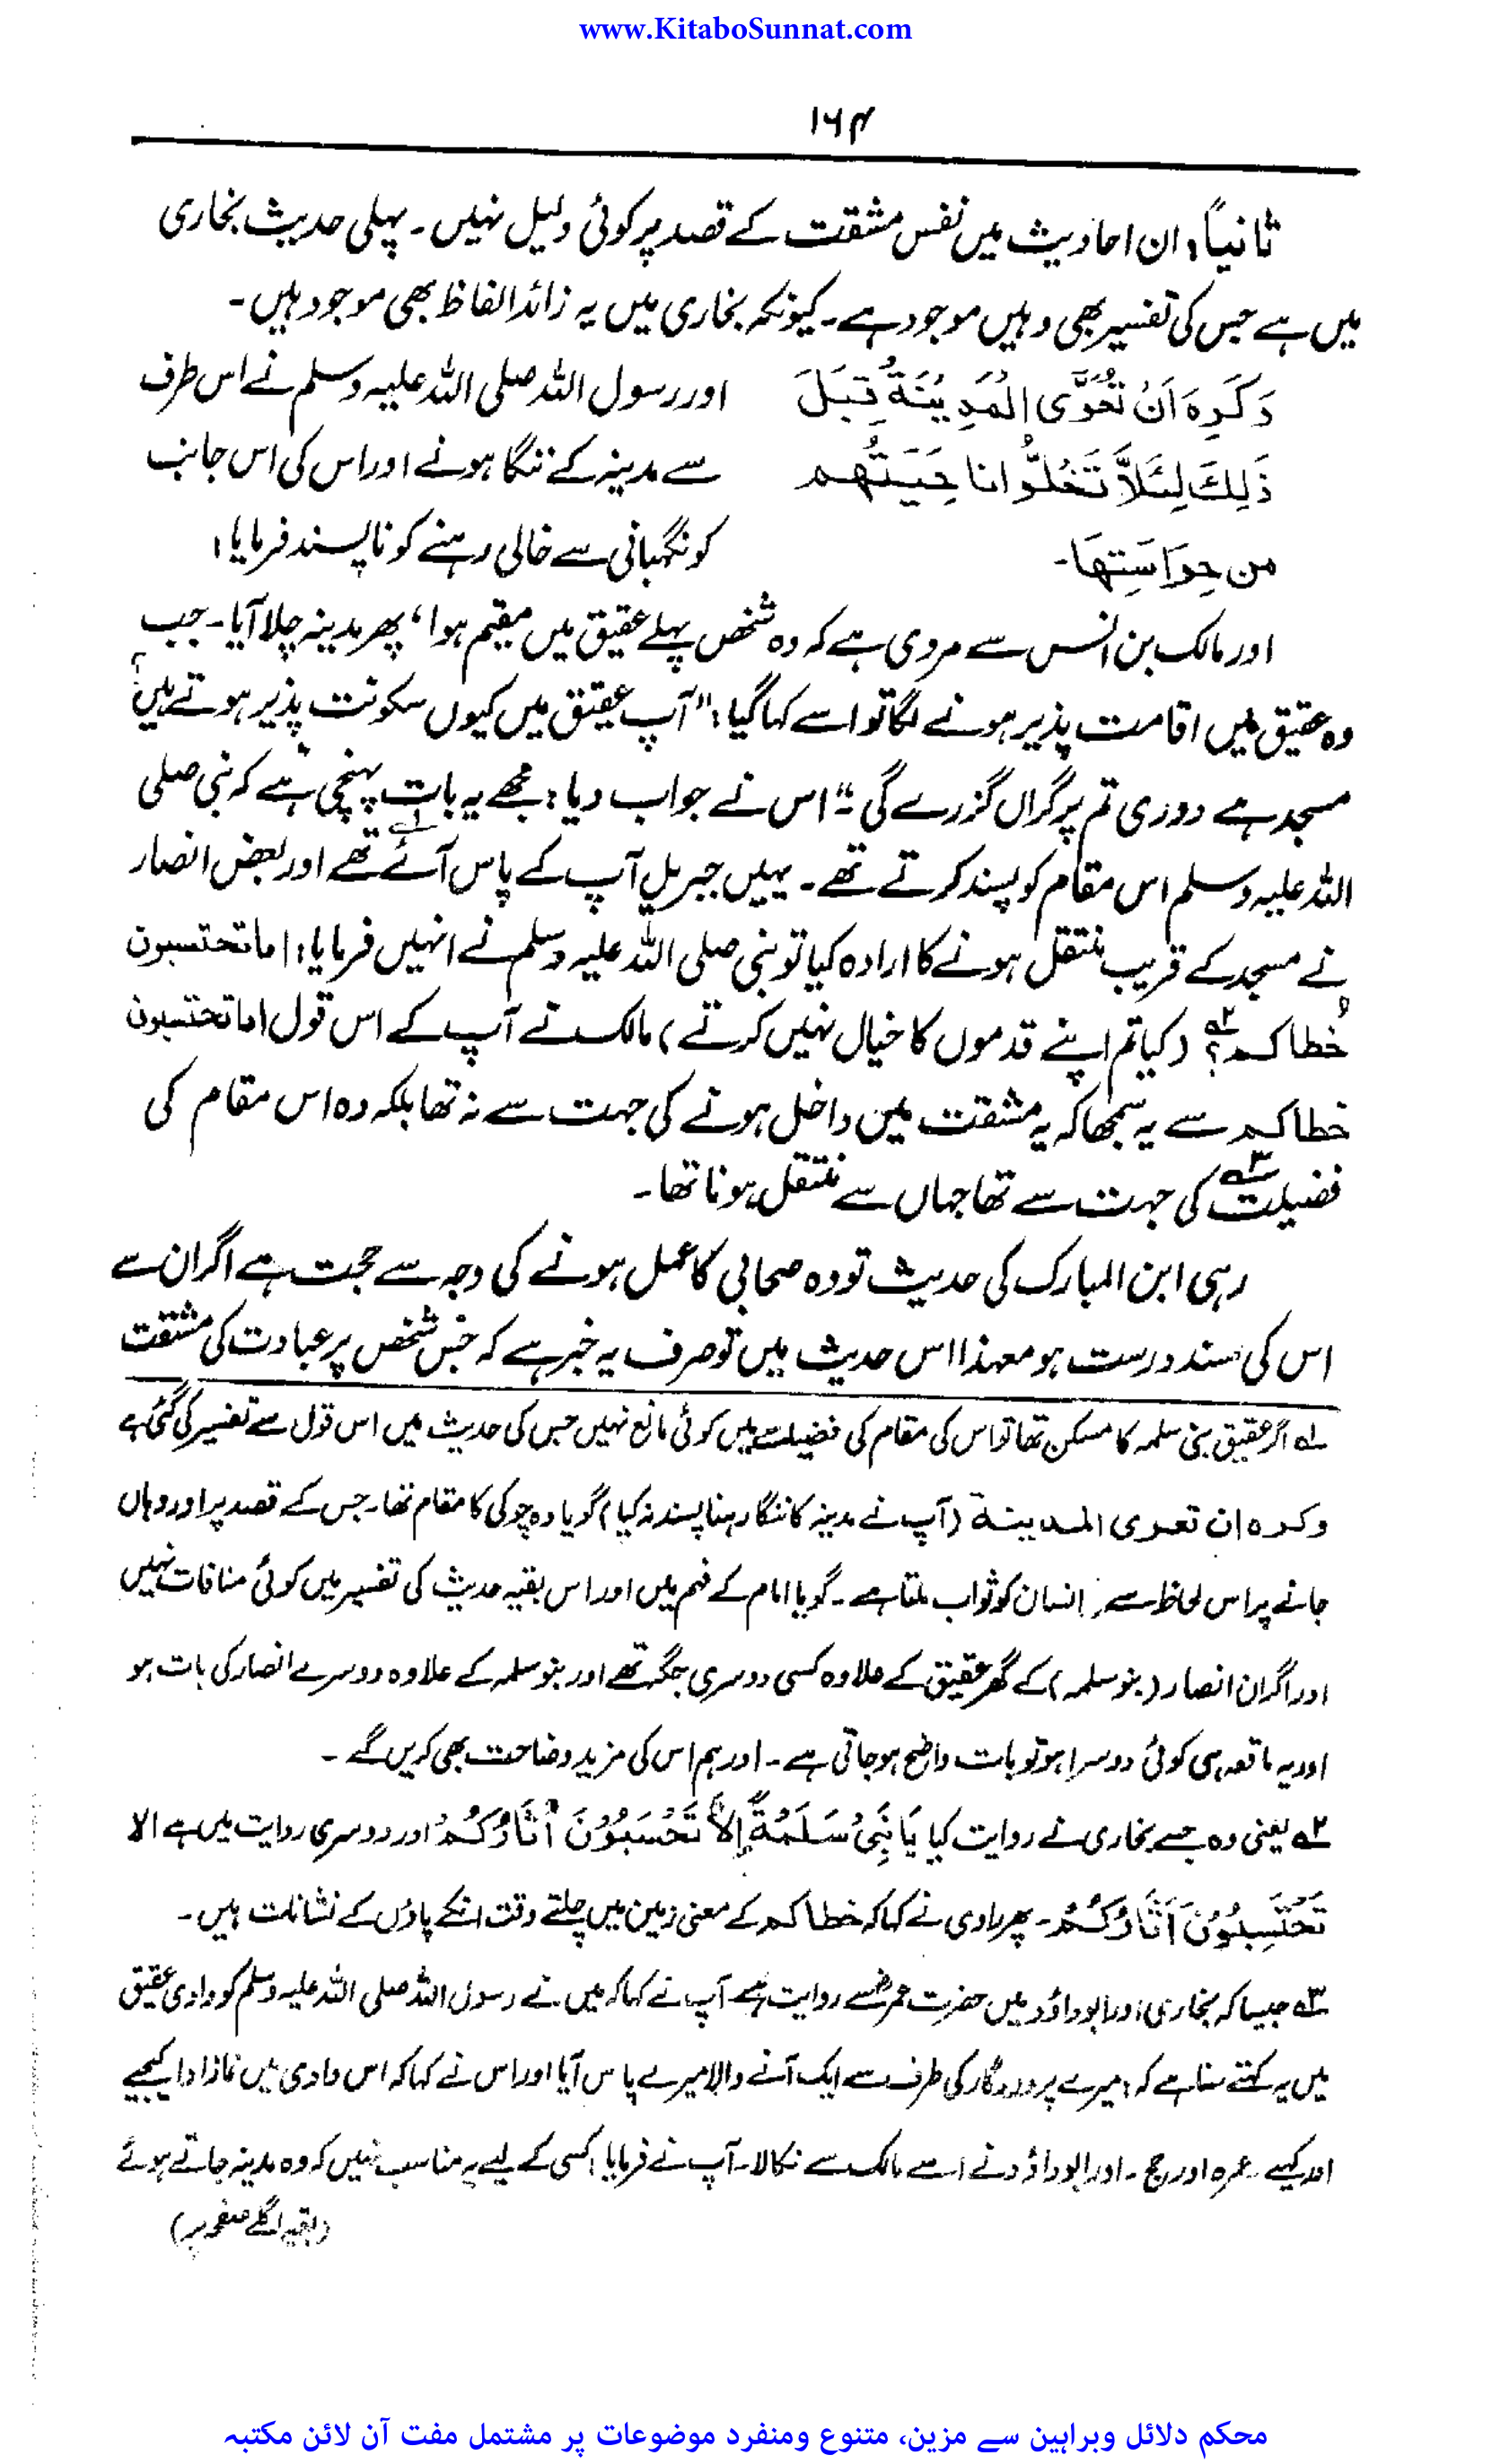 www.KitaboSunnat.com
۱۶۴
ثانیاً، ان احادیث میں نفس مشقت کے قصد پر کوئی دلیل نہیں۔ پہلی حدیث بخاری
میں ہے جس کی تفسیر بھی وہیں موجود ہے۔ کیونکہ بخاری میں یہ زائد الفاظ بھی موجود ہیں۔
وَكَرِهَ اَنْ تُعَرَّى الْمَدِيْنَةُ قِبَلَ اور رسول اللہ صلی اللہ علیہ وسلم نے اس طرف
ذَلِكَ لِئَلَّا تَخْلُوْا نَاحِيَتُهم سے مدینہ کے ننگا ہونے اور اس کی اس جانب
من حِرَاسَتِهَا۔ کو نگہبانی سے خالی رہنے کو ناپسند فرمایا:
اور مالک بن انس سے مروی ہے کہ وہ شخص پہلے عقیق میں مقیم ہوا، پھر مدینہ چلا آیا۔ جب
وہ عقیق میں اقامت پذیر ہونے لگا تو اسے کہا گیا: "آپ عقیق میں کیوں سکونت پذیر ہوتے ہیں؟
مسجد سے دوری تم پر گراں گزرے گی"۔ اس نے جواب دیا: مجھے یہ بات پہنچی ہے کہ نبی صلی
اللہ علیہ وسلم اس مقام کو پسند کرتے تھے۔ یہیں جبریل آپ کے پاس آئے تھے ۱ اور بعض انصار
نے مسجد کے قریب منتقل ہونے کا ارادہ کیا تو نبی صلی اللہ علیہ وسلم نے انہیں فرمایا: اما تحتسبون
خُطاکم؟ ۲ (کیا تم اپنے قدموں کا خیال نہیں کرتے) مالک نے آپ کے اس قول اما تحتسبون
خطاکم سے یہ سمجھا کہ یہ مشقت میں داخل ہونے کی جہت سے نہ تھا بلکہ وہ اس مقام کی
فضیلت ۳ کی جہت سے تھا جہاں سے منتقل ہونا تھا۔
رہی ابن المبارک کی حدیث تو وہ صحابی کا عمل ہونے کی وجہ سے حجت ہے اگر ان سے
اس کی سند درست ہو معہذا اس حدیث میں تو صرف یہ خبر ہے کہ جس شخص پر عبادت کی مشقت
۱ اگر عقیق بنی سلمہ کا مسکن تھا تو اس کی مقام کی فضیلت میں کوئی مانع نہیں جس کی حدیث میں اس قول سے تفسیر کی گئی ہے
وکرہ ان تعری المدینۃ (آپ نے مدینہ کا ننگا رہنا پسند نہ کیا) گویا وہ چوکی کا مقام تھا۔ جس کے قصد پر اور وہاں
جانے پر اس لحاظ سے انسان کو ثواب ملتا ہے۔ گویا امام کے فہم میں اور اس بقیہ حدیث کی تفسیر میں کوئی منافات نہیں
اور اگر ان انصار (بنو سلمہ) کے گھر عقیق کے علاوہ کسی دوسری جگہ تھے اور بنو سلمہ کے علاوہ دوسرے انصار کی بات ہو
اور یہ واقعہ ہی کوئی دوسرا ہو تو بات واضح ہو جاتی ہے۔ اور ہم اس کی مزید وضاحت بھی کریں گے۔
۲ یعنی وہ جسے بخاری نے روایت کیا يَا بَنِيْ سَلَمَةَ إِلاَّ تَحْسَبُوْنَ اٰثَارَكُمْ اور دوسری روایت میں ہے الا
تَحْتَسِبُوْنَ اٰثَارَكُمْ۔ پھر راوی نے کہا کہ خطاکم کے معنی زمین میں چلتے وقت انکے پاؤں کے نشانات ہیں۔
۳ جیسا کہ بخاری اور ابوداؤد میں حضرت عمرؓ سے روایت ہے آپ نے کہا کہ میں نے رسول اللہ صلی اللہ علیہ وسلم کو وادی عقیق
میں یہ کہتے سنا ہے کہ: میرے پروردگار کی طرف سے ایک آنے والا میرے پاس آیا اور اس نے کہا کہ اس وادی میں نماز ادا کیجیے
اور کہیے عمرہ اور حج۔ اور ابوداؤد نے اسے مالک سے نکالا۔ آپ نے فرمایا: کسی کے لیے یہ مناسب نہیں کہ وہ مدینہ جاتے ہوئے
(بقیہ اگلے صفحہ پر)
محکم دلائل وبراہین سے مزین، متنوع ومنفرد موضوعات پر مشتمل مفت آن لائن مکتبہ